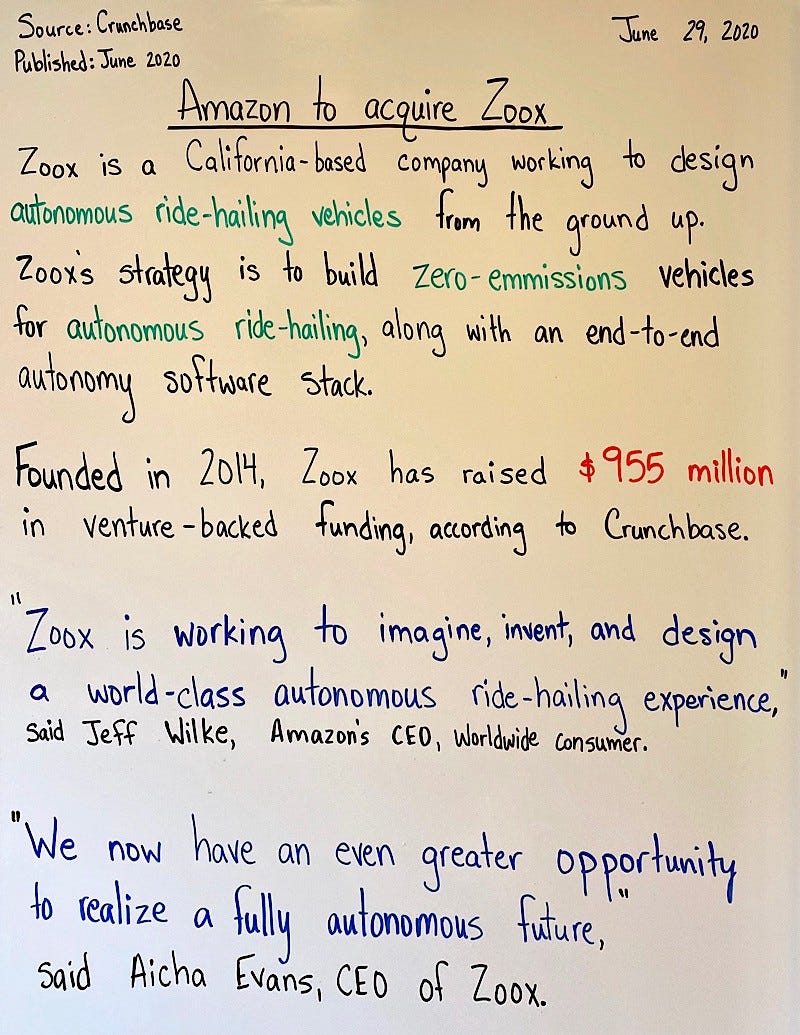 Source: Crunchbase
June 29, 2020
Published: June 2020
Amazon to acquire Zoox
Zoox is a California-based company working to design
autonomous ride-hailing vehicles from the ground up.
Zoox's strategy is to build zero-emmissions vehicles
for autonomous ride-hailing, along with an end-to-end
autonomy software stack.
Founded in 2014, Zoox has raised $955 million
in venture-backed funding, according to Crunchbase.
"Zoox is working to imagine, invent, and design
a world-class autonomous ride-hailing experience,"
said Jeff Wilke, Amazon's CEO, Worldwide Consumer.
"We now have an even greater opportunity
to realize a fully autonomous future,"
said Aicha Evans, CEO of Zoox.